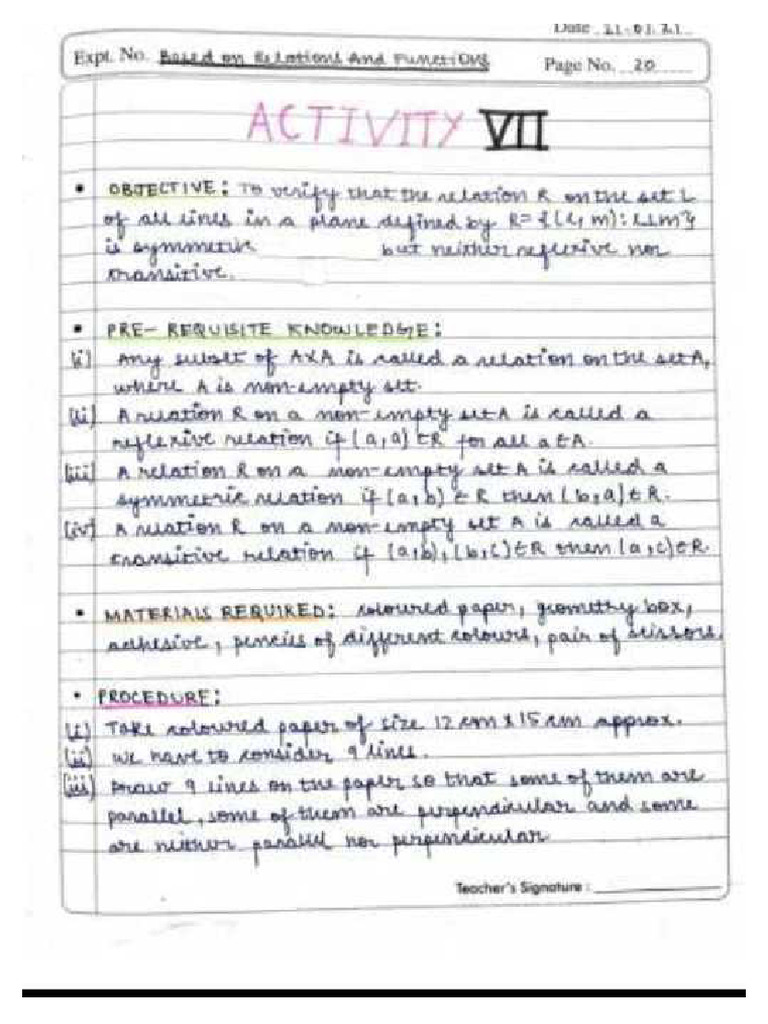 Date 21.03.21
Expt. No. Based on Relations And Functions
Page No. 20
ACTIVITY VII
• OBJECTIVE: To verify that the relation R on the set L
of all lines in a plane defined by R= {(l, m): l⊥m}
is symmetric but neither reflexive nor
transitive.
• PRE- REQUISITE KNOWLEDGE:
(i) Any subset of AXA is called a relation on the set A,
where A is non-empty set.
(ii) A relation R on a non-empty set A is called a
reflexive relation if (a,a) ∈R for all a∈A.
(iii) A relation R on a non-empty set A is called a
symmetric relation if (a,b) ∈ R then (b,a)∈R.
(iv) A relation R on a non-empty set A is called a
transitive relation if (a,b), (b,c)∈R then (a,c)∈R.
• MATERIALS REQUIRED: coloured paper, geometry box,
adhesive, pencils of different colours, pair of scissors.
• PROCEDURE:
(i) Take coloured paper of size 12 cm x 15 cm approx.
(ii) We have to consider 9 lines.
(iii) Draw 9 lines on the paper so that some of them are
parallel, some of them are perpendicular and some
are neither parallel nor perpendicular.
Teacher's Signature :